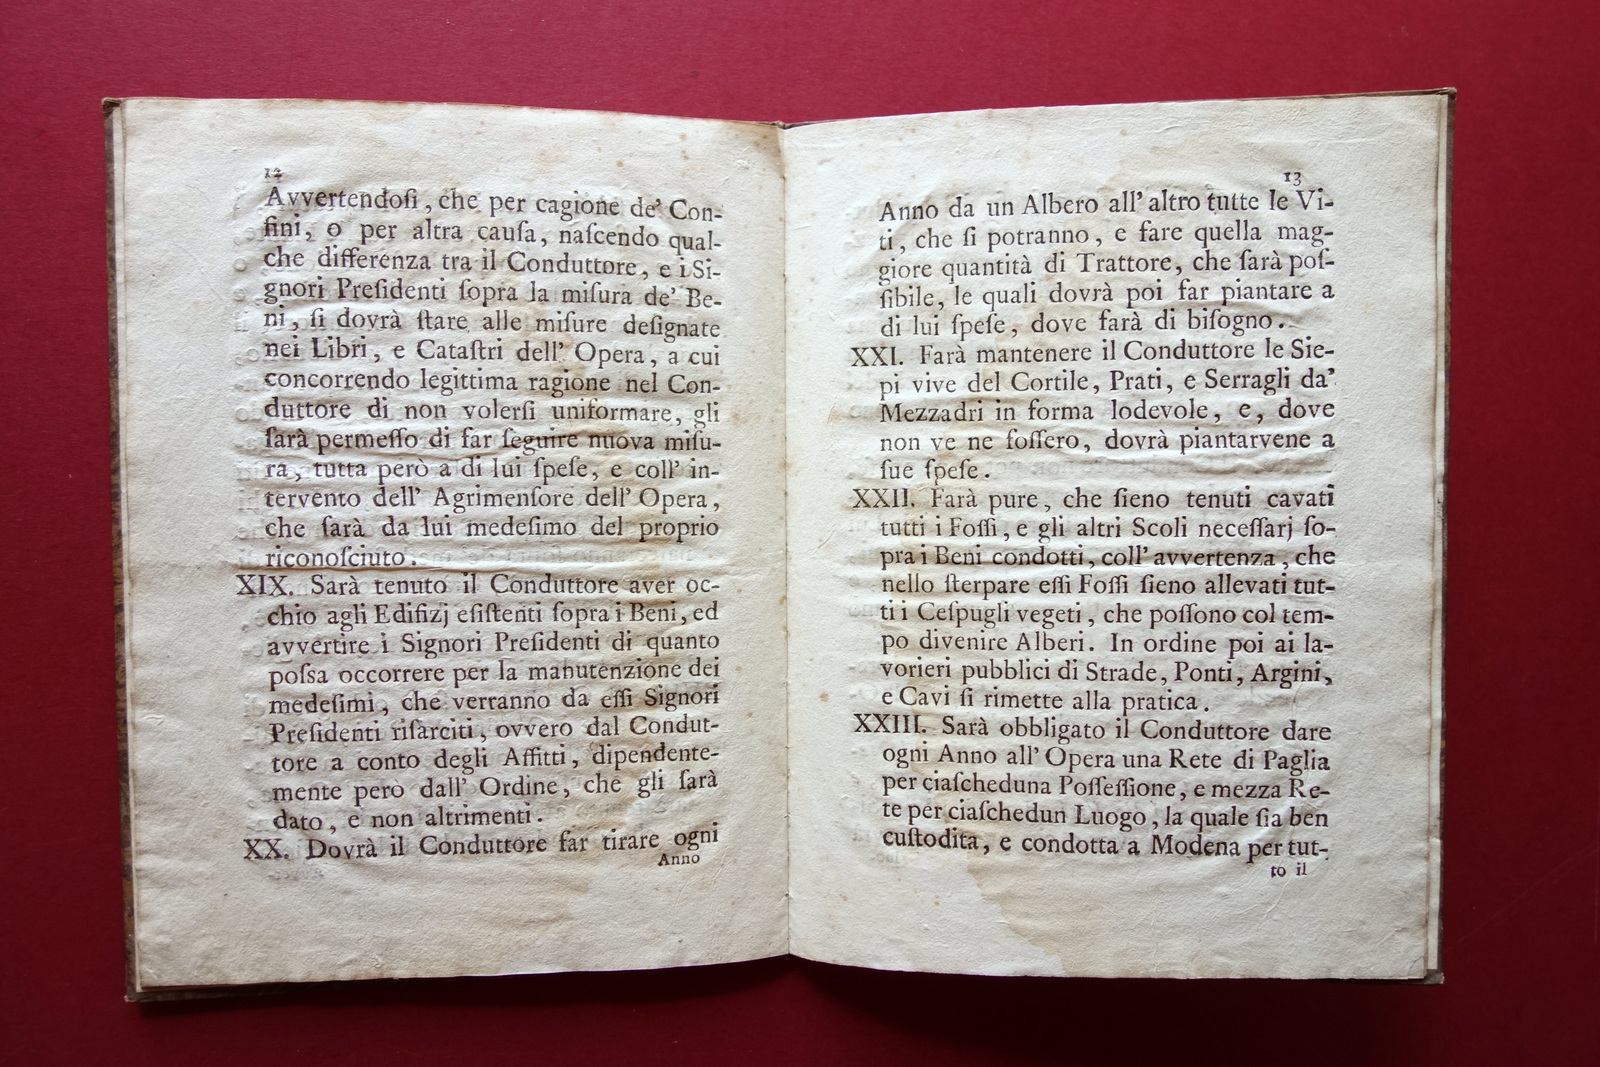 12
Avvertendoſi, che per cagione de' Con-
fini, o per altra cauſa, naſcendo qual-
che differenza tra il Conduttore, e i Si-
gnori Preſidenti ſopra la miſura de' Be-
ni, ſi dovrà ſtare alle miſure deſignate
nei Libri, e Cataſtri dell' Opera, a cui
concorrendo legittima ragione nel Con-
duttore di non volerſi uniformare, gli
ſarà permeſſo di far ſeguire nuova miſu-
ra, tutta però a di lui ſpeſe, e coll' in-
tervento dell' Agrimenſore dell' Opera,
che ſarà da lui medeſimo del proprio
riconoſciuto.
XIX. Sarà tenuto il Conduttore aver oc-
chio agli Edifizj eſiſtenti ſopra i Beni, ed
avvertire i Signori Preſidenti di quanto
poſſa occorrere per la manutenzione dei
medeſimi, che verranno da eſſi Signori
Preſidenti riſarciti, ovvero dal Condut-
tore a conto degli Affitti, dipendente-
mente però dall' Ordine, che gli ſarà
dato, e non altrimenti.
XX. Dovrà il Conduttore far tirare ogni
Anno
13
Anno da un Albero all' altro tutte le Vi-
ti, che ſi potranno, e fare quella mag-
giore quantità di Trattore, che ſarà poſ-
ſibile, le quali dovrà poi far piantare a
di lui ſpeſe, dove farà di biſogno.
XXI. Farà mantenere il Conduttore le Sie-
pi vive del Cortile, Prati, e Serragli da'
Mezzadri in forma lodevole, e, dove
non ve ne foſſero, dovrà piantarvene a
ſue ſpeſe.
XXII. Farà pure, che ſieno tenuti cavati
tutti i Foſſi, e gli altri Scoli neceſſarj ſo-
pra i Beni condotti, coll' avvertenza, che
nello ſterpare eſſi Foſſi ſieno allevati tut-
ti i Ceſpugli vegeti, che poſſono col tem-
po divenire Alberi. In ordine poi ai la-
vorieri pubblici di Strade, Ponti, Argini,
e Cavi ſi rimette alla pratica.
XXIII. Sarà obbligato il Conduttore dare
ogni Anno all' Opera una Rete di Paglia
per ciaſcheduna Poſſeſſione, e mezza Re-
te per ciaſchedun Luogo, la quale ſia ben
cuſtodita, e condotta a Modena per tut-
to il